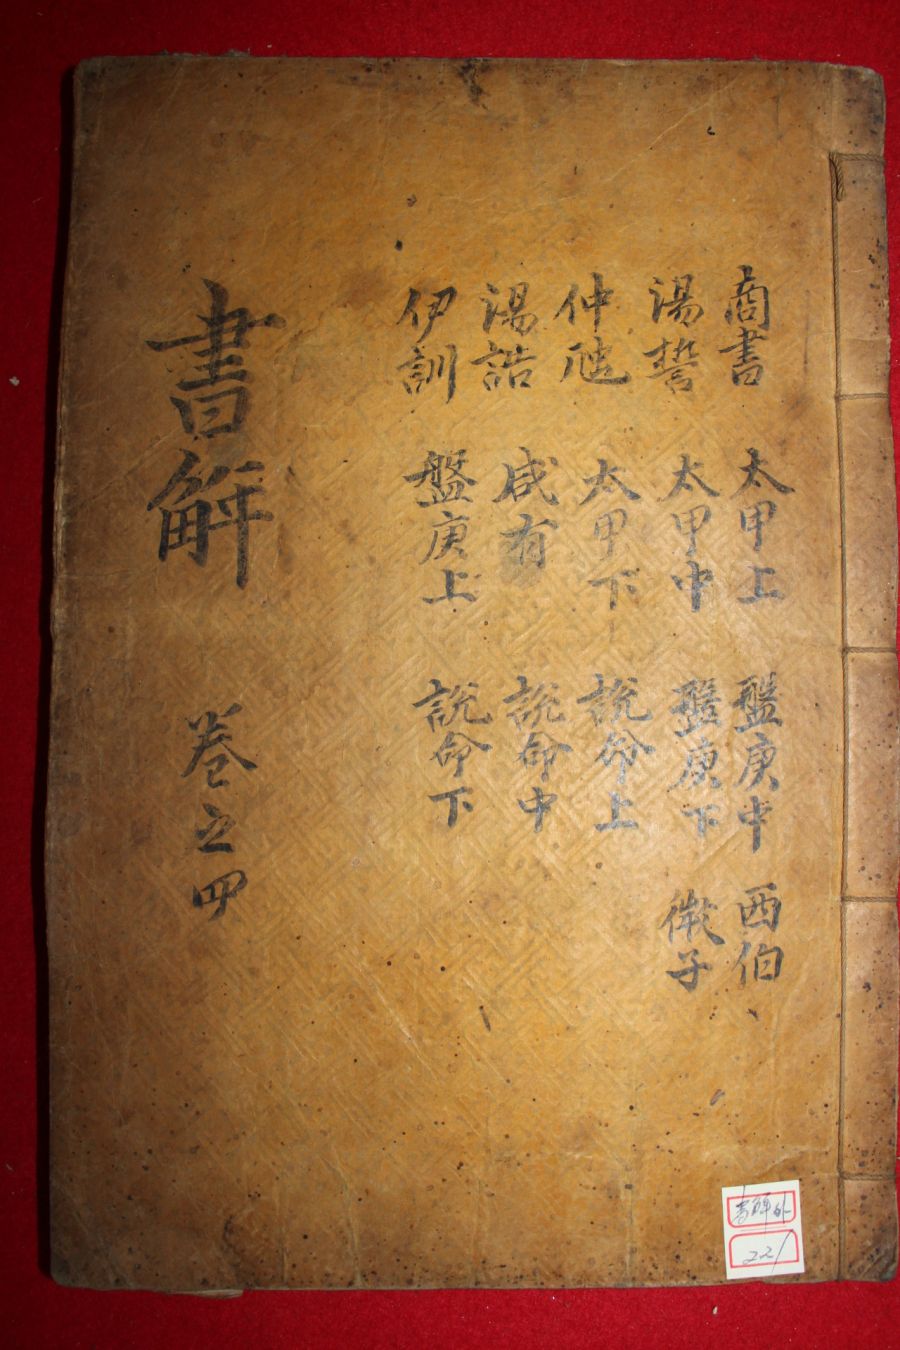 商書
湯誓
仲虺
湯誥
伊訓
太甲上
太甲中
太甲下
咸有
盤庚上
盤庚中
盤庚下
說命上
說命中
說命下
西伯
微子
書解 卷之四
書解
221